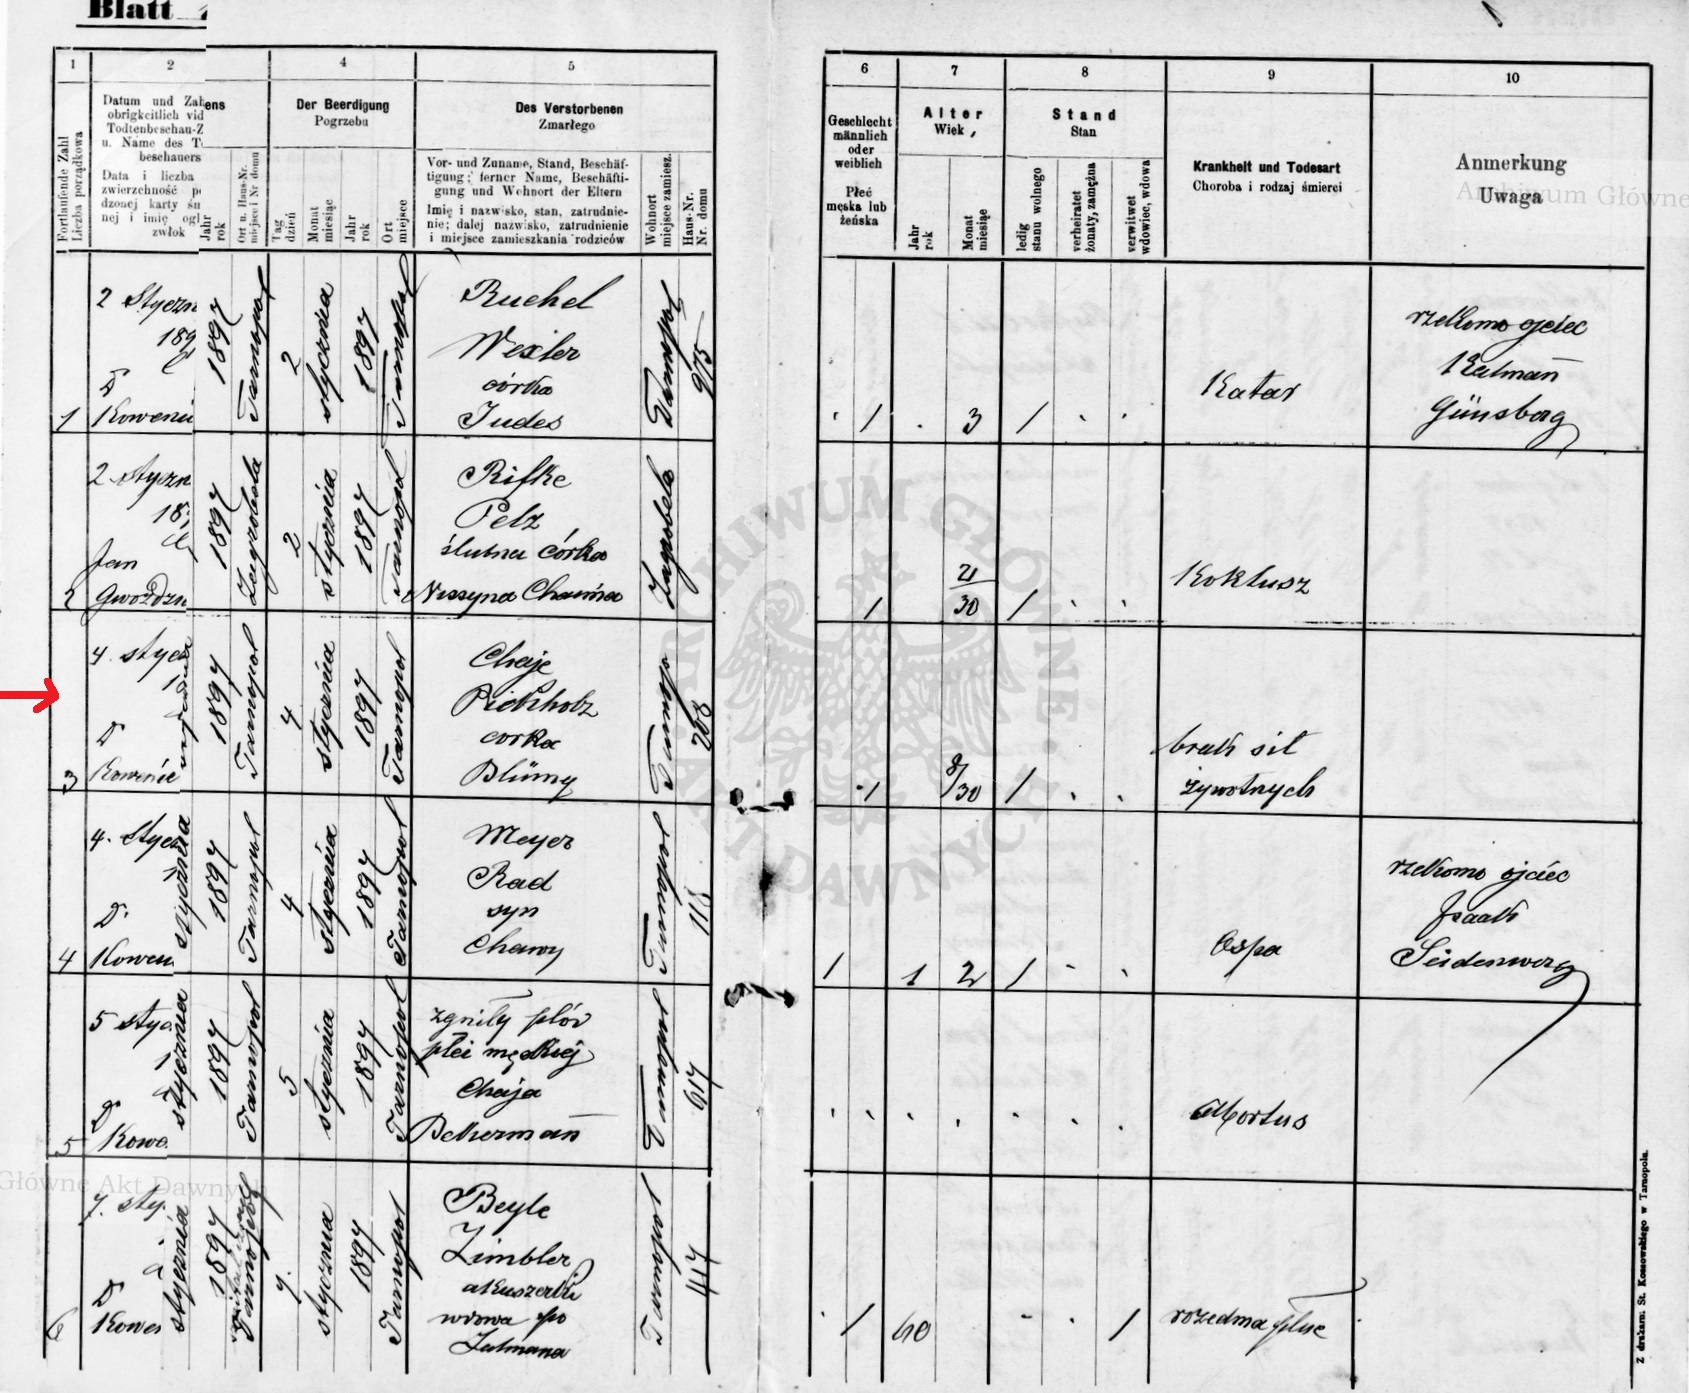 Blatt
1
2
4
5
6
7
8
9
10
Fortlaufende Zahl
Liczba porządkowa
Datum und Zah
obrigkeitlich vid
Todtenbeschau-Z
u. Name des T
beschauers
Data i liczba
zwierzchność p
dzonej karty
nej i imię ogl
zwłok
ens
Jahr
rok
Ort u. Haus-Nr.
miejsce i Nr domu
Der Beerdigung
Pogrzebu
Tag
dzień
Monat
miesiąc
Jahr
rok
Ort
miejsce
Des Verstorbenen
Zmarłego
Vor- und Zuname, Stand, Beschäf-
tigung; ferner Name, Beschäfti-
gung und Wohnort der Eltern
Imię i nazwisko, stan, zatrudnie-
nie; dalej nazwisko, zatrudnienie
i miejsce zamieszkania rodziców
Wohnort
miejsce zamiesz.
Haus-Nr.
Nr. domu
Geschlecht
männlich
oder
weiblich
Płeć
męska lub
żeńska
Alter
Wiek
Jahr
rok
Monat
miesiąc
Stand
Stan
ledig
stanu wolnego
verheiratet
żonaty, zamężna
verwitwet
wdowiec, wdowa
Krankheit und Todesart
Choroba i rodzaj śmierci
Anmerkung
Uwaga
1
2 Styczn
189
D
Koweni
1897
Tarnopol
2
stycznia
1897
Tarnopol
Ruchel
Wexler
córka
Judes
Tarnopol
975
1
3
1
Katar
rzekomo ojciec
Kalman
Günsberg
2
2 styczn
18
Jan
Gwoźdzn
1897
Zagrobela
2
stycznia
1897
Tarnopol
Rifke
Pelz
ślubna córka
Nissyna Chaima
Zagrobela
1
21/30
1
Koklusz
3
4 stycz
D
Kowenic
1897
Tarnopol
4
stycznia
1897
Tarnopol
Chaje
Pickholz
corka
Blümy
Tarnopo
208
1
8/30
1
brak sił
żywotnych
4
4. Stycz
Dr
Kowen
stycznia
1897
Tarnopol
4
stycznia
1897
Tarnopol
Meyer
Rad
syn
Chawy
Tarnopol
118
1
1
2
1
Ospa
rzekomo ojciec
Isaak
Seidenwerg
5
5 styc
Dr
Kowe
stycznia
1897
Tarnopol
5
stycznia
1897
Tarnopol
zgniły płód
płci męskiej
Chaja
Bekerman
Tarnopol
617
Abortus
6
7. sty
Dr
Kowe
stycznia
1897
Tarnopol
7.
stycznia
1897
Tarnopol
Beyle
Zimbler
akuszerka
wdowa po
Zalmana
Tarnopol
417
1
60
1
rozedma płuc
Z drukarni St. Kossowskiego w Tarnopolu.
ARCHIWUM GŁÓWNE AKT DAWNYCH
Archiwum Główne
Główne Akt Dawnych